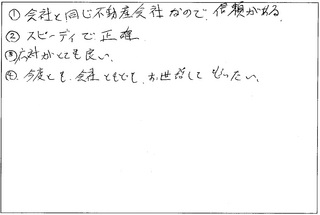 ① 会社と同じ不動産会社なので、信頼がある。
② スピーディで正確
③ 応対がとても良い。
④ 今後とも、会社ともども、お世話してもらいたい。